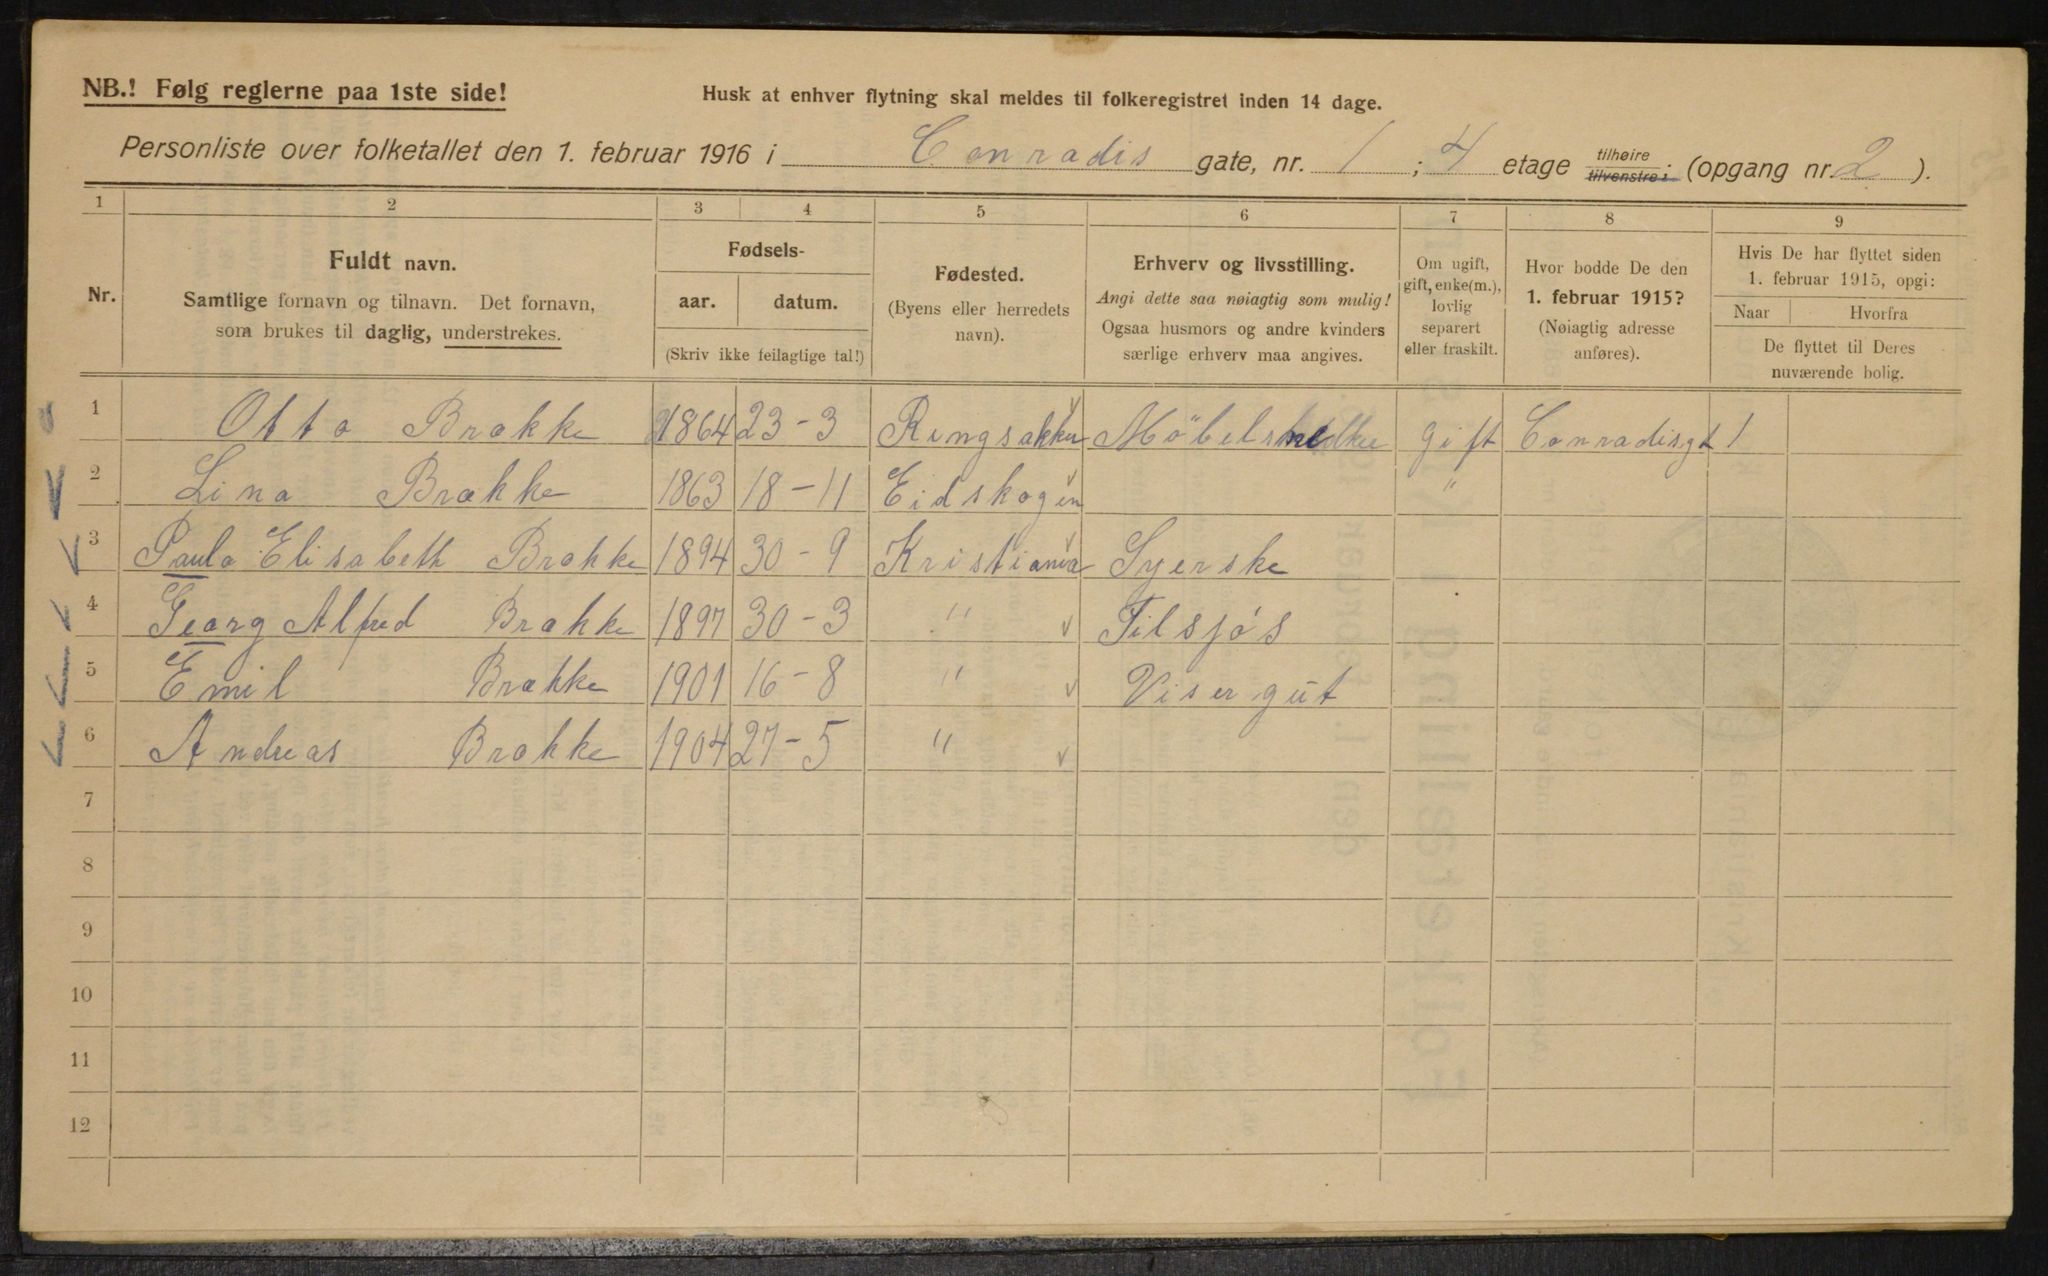 NB.! Følg reglerne paa 1ste side!
Husk at enhver flytning skal meldes til folkeregistret inden 14 dage.
Personliste over folketallet den 1. februar 1916 i Conradis gate, nr. 1 ; 4 etage tilhøire tilvenstre : (opgang nr. 2 ).
1 2 3 4 5 6 7 8 9
Nr.
Fuldt navn.
Samtlige fornavn og tilnavn. Det fornavn,
som brukes til daglig, understrekes.
Fødsels-
aar. datum.
(Skriv ikke feilagtige tal!)
Fødested.
(Byens eller herredets
navn).
Erhverv og livsstilling.
Angi dette saa nøiagtig som mulig!
Ogsaa husmors og andre kvinders
særlige erhverv maa angives.
Om ugift,
gift, enke(m.),
lovlig
separert
eller fraskilt.
Hvor bodde De den
1. februar 1915?
(Nøiagtig adresse
anføres).
Hvis De har flyttet siden
1. februar 1915, opgi:
Naar Hvorfra
De flyttet til Deres
nuværende bolig.
1 Otto Brakke 1864 23-3 Ringsakker gift Conradisgt 1
2 Lina Brakke 1863 18-11 Eidskogen "
3 Paula Elisabeth Brakke 1894 30-9 Kristiania Syerske
4 Georg Alfred Brakke 1897 30-3 " Tilsjøs
5 Emil Brakke 1901 16-8 " Visergut
6 Andreas Brakke 1904 27-5 "
7
8
9
10
11
12